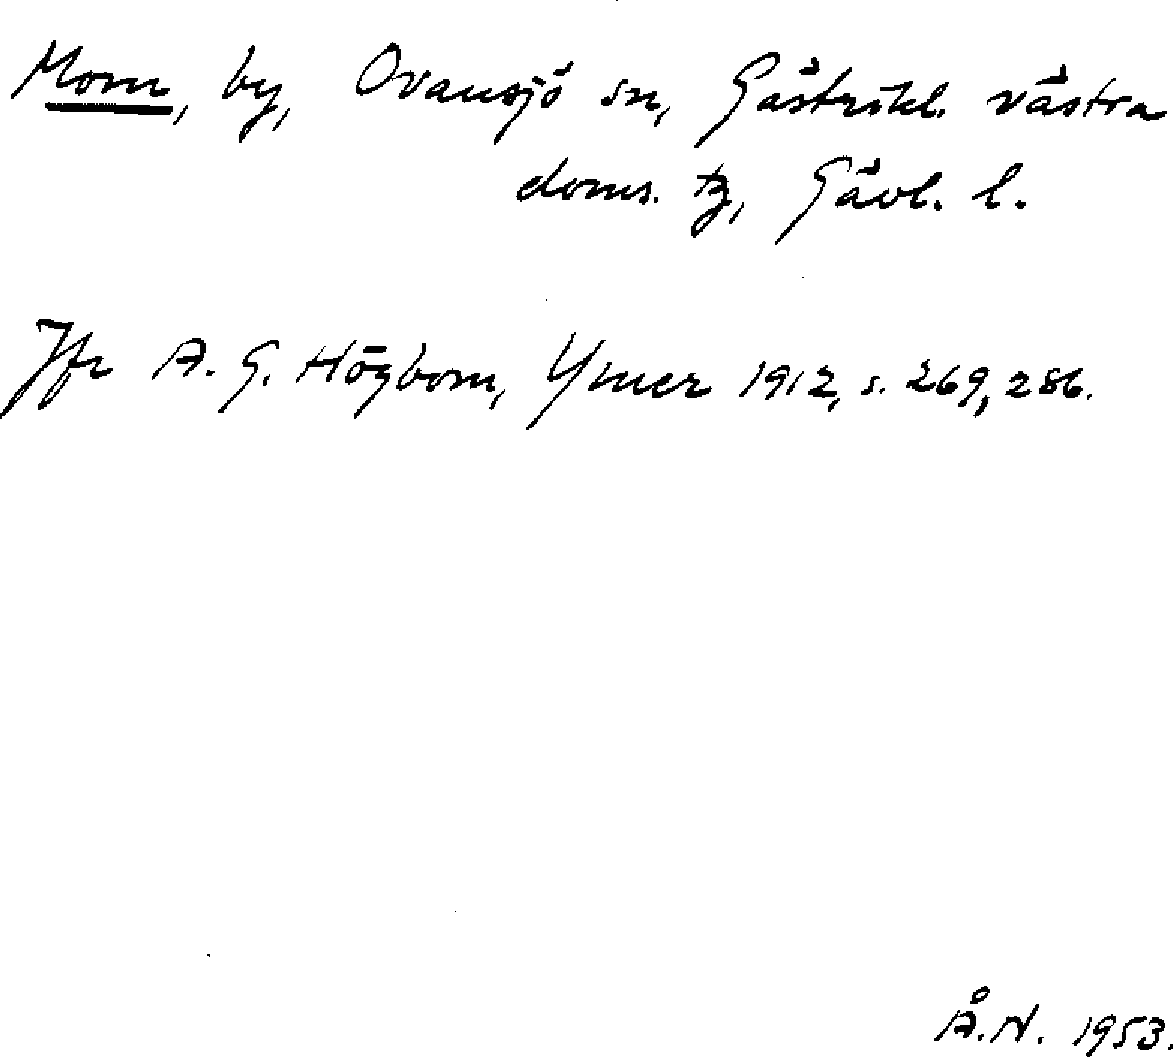 Mom, by, Ovansjö sn, Gästrikl. västra
doms. tg, Gävl. l.
Jfr A. G. Högbom, Ymer 1912, s. 269, 286.
Å. N. 1953.